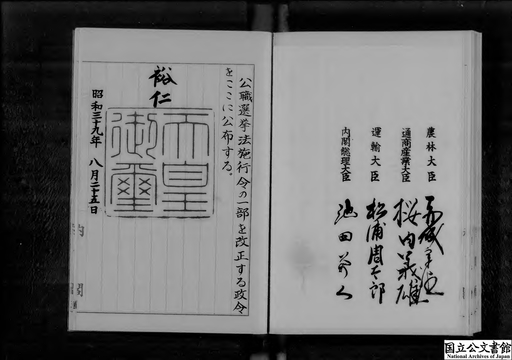 農林大臣 赤城宗徳
通商産業大臣 桜内義雄
運輸大臣 松浦周太郎
内閣総理大臣 池田勇人
公職選挙法施行令の一部を改正する政令
をここに公布する。
裕仁
天皇
御璽
昭和三十九年 八月二十五日
国立公文書館
National Archives of Japan